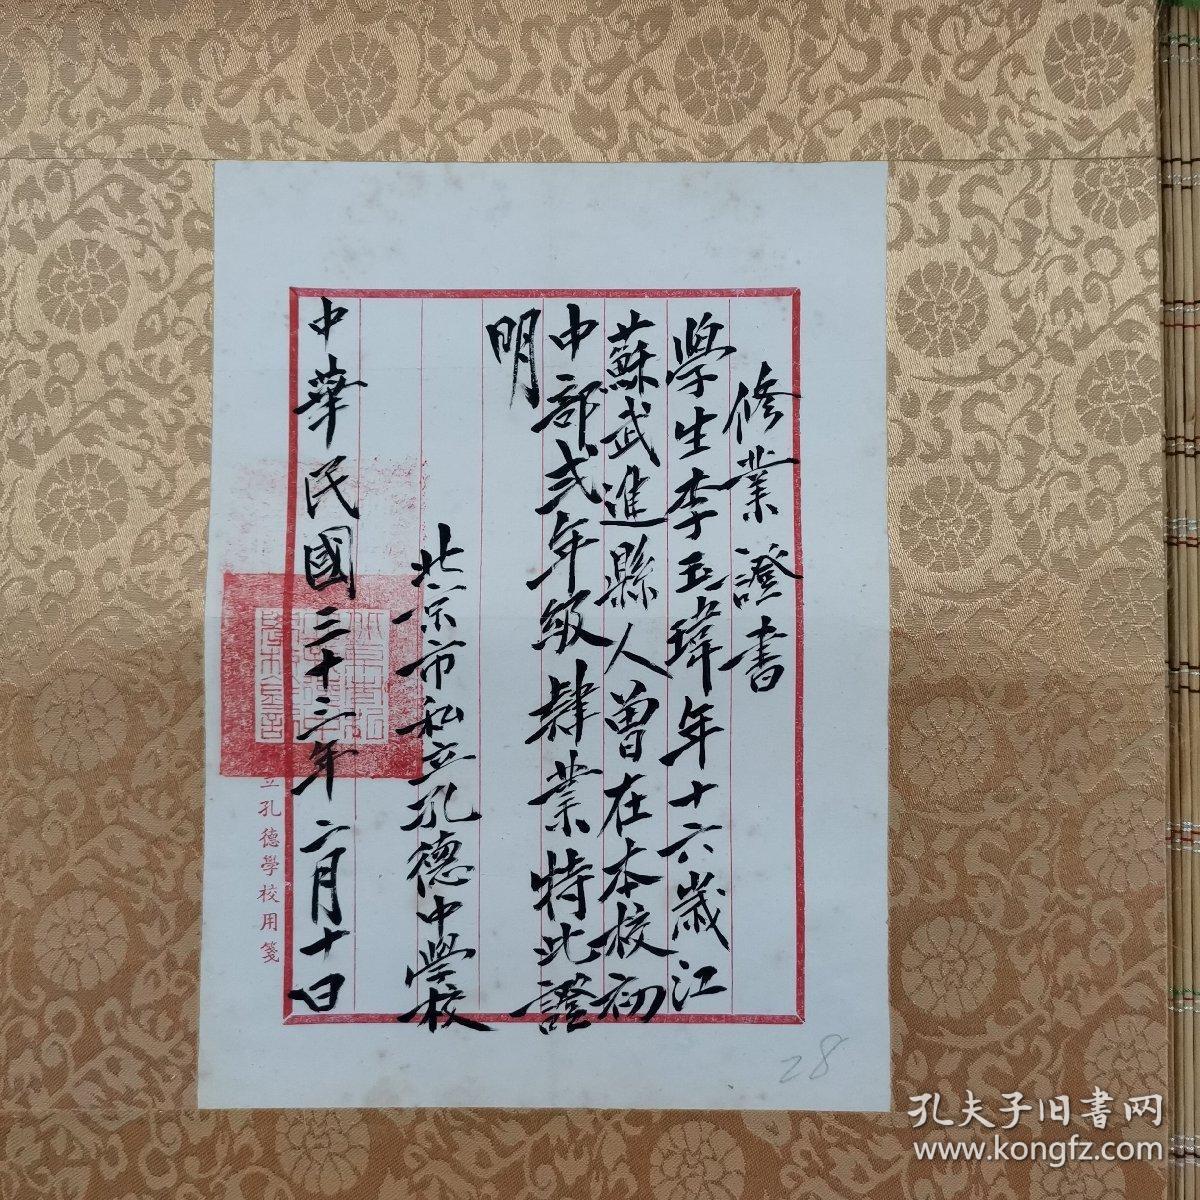 修業證書
學生李玉瑋年十六歲江
蘇武進縣人曾在本校初
中部弍年級肄業特此證
明
北京市私立孔德中學校
中華民國三十三年二月十日
立孔德學校用箋
28
孔夫子旧書网
www.kongfz.com